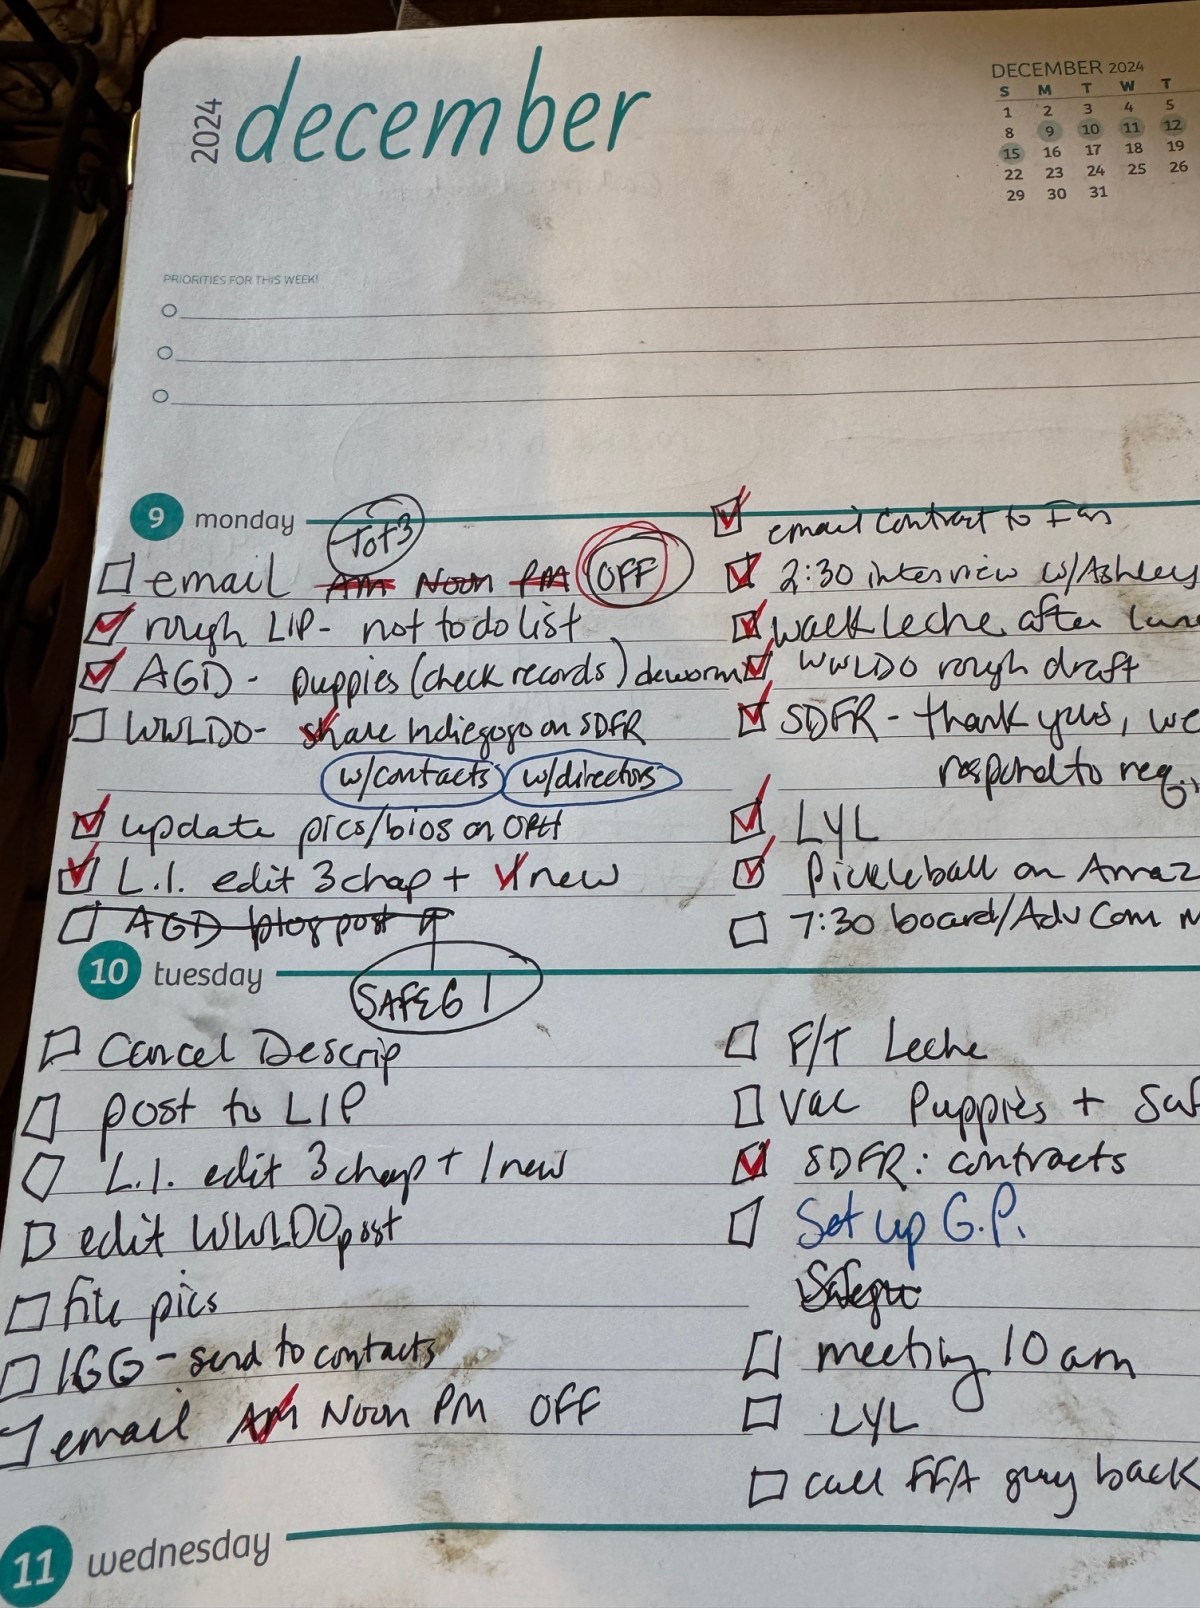 2024 december
DECEMBER 2024
S M T W T
1 2 3 4 5
8 9 10 11 12
15 16 17 18 19
22 23 24 25 26
29 30 31
PRIORITIES FOR THIS WEEK!
9 monday
TOT3
email AM Noon PM OFF
rough LIP - not to do list
AGD - puppies (check records) deworm
WWLDO - share Indiegogo on SDFR
w/contacts w/directors
update pics/bios on OPH
L.I. edit 3 chap + 1 new
AGD blog post
email contract to Ian
2:30 interview w/Ashley
walk Leche after
WWLDO rough draft
SDFR - thank yous, we
respond to req.
LYL
Pickleball on Amaz
7:30 board/Adv Com M
10 tuesday
SAFEG 1
Cancel Descrip
post to LIP
L.I. edit 3 chap + 1 new
edit WWLDO post
file pics
IGG - send to contacts
email AM Noon PM OFF
F/T Leche
Vac Puppies + Saf
SDFR: contracts
Set up G.P.
meeting 10 am
LYL
call FFA guy back
11 wednesday